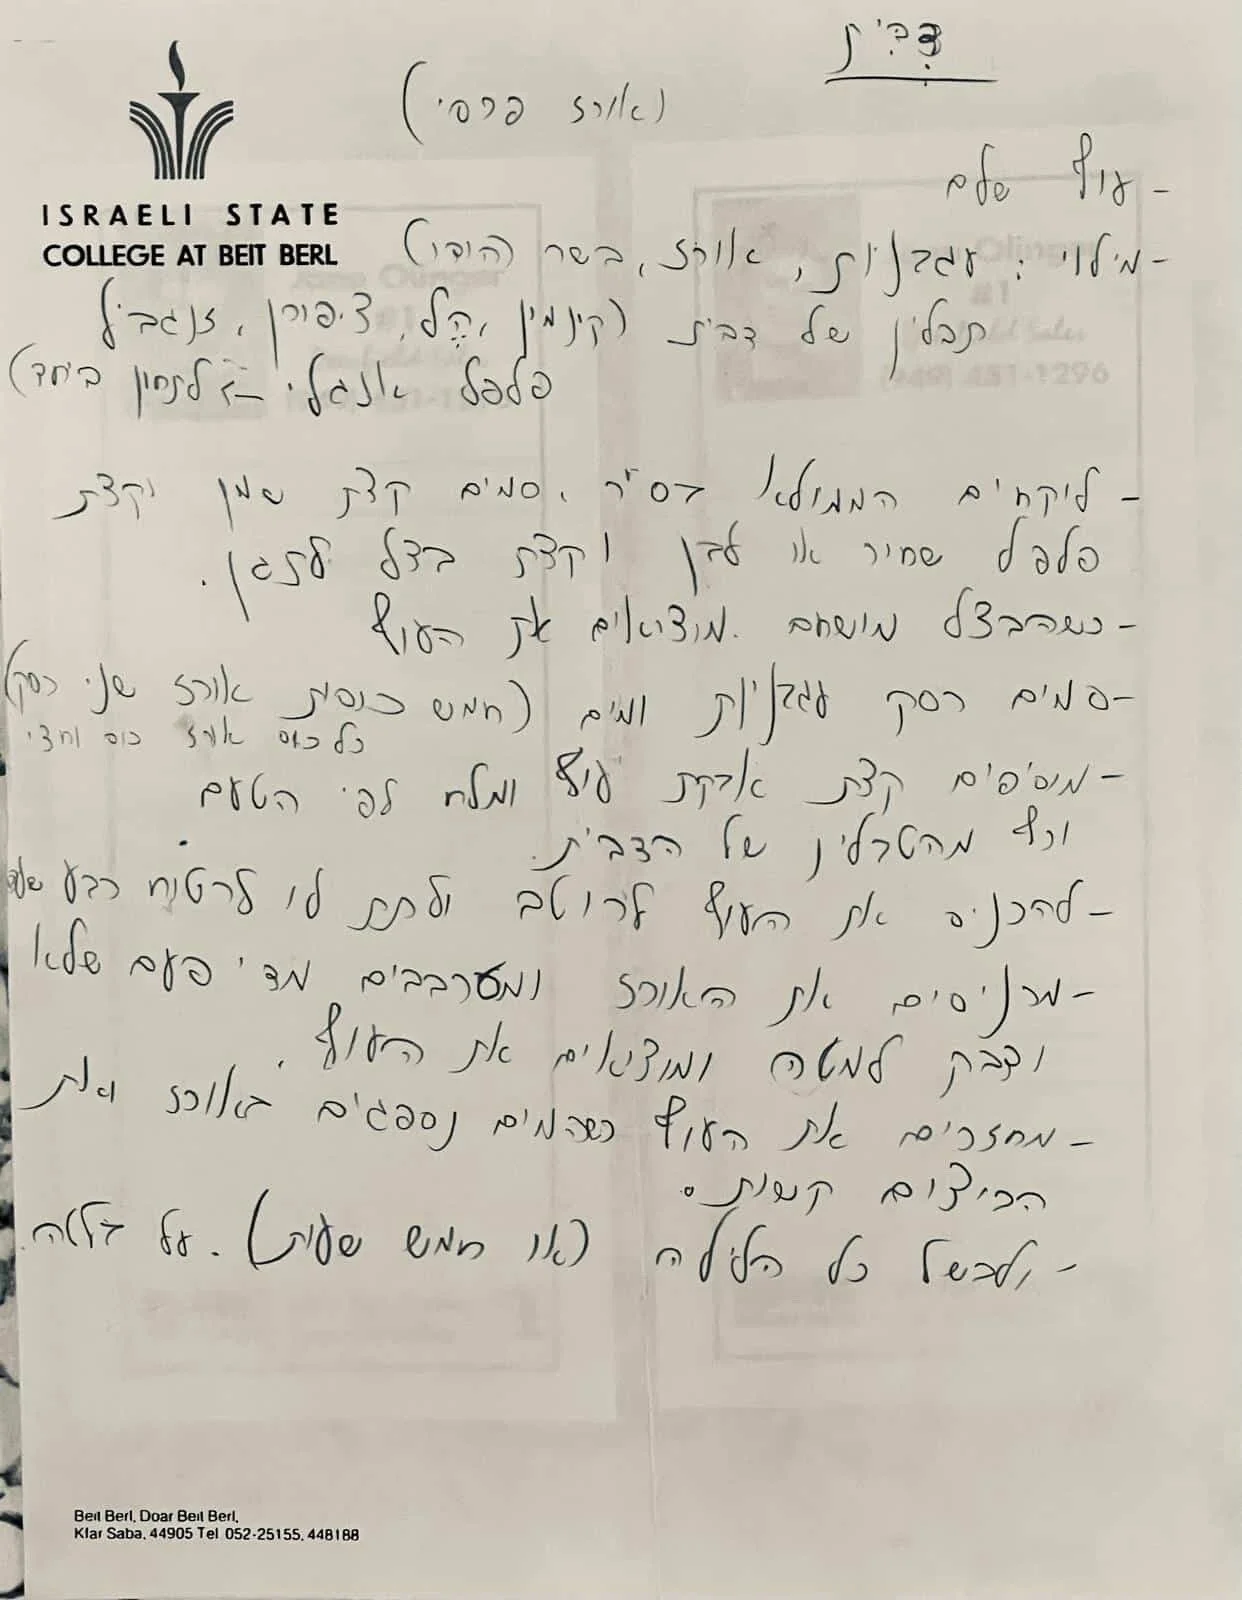 טבית
(אורז פרסי)
ISRAELI STATE
COLLEGE AT BEIT BERL
- עוף שלם
- מילוי: עגבניות, אורז, בשר (הודו)
תבלין של טבית (קינמון, הֶל, ציפורן, זנגביל
פלפל אנגלי -> לתחון ביחד)
- ליקחים הממולא בסיר, סמים קצת שמן וקצת
פלפל שחיר או לבן וקצת בצל לתגן.
- כשהבצל מושחם. מוציאים את העוף
- סמים רסק עגבניות ומים (חמש כוסות אורז שני רסק)
כל כוס אורז כוס וחצי
- מוסיפים קצת אבקת עוף ומלח לפי הטעם
וכף מהטבלין של הטבית.
- להכניס את העוף לרוטב ולתת לו לרטוח רבע שעה
- מכניסים את האורז ומערבבים מדי פעם שלא
ידבק למטה ומוציאים את העוף.
- מחזרים את העוף כשהמים נספגים באורז ואת
הביצים קשות.
- ולבשל כל הלילה (או חמש שעות). על פלטה.
Beit Berl, Doar Beit Berl,
Kfar Saba, 44905 Tel 052-25155, 448188